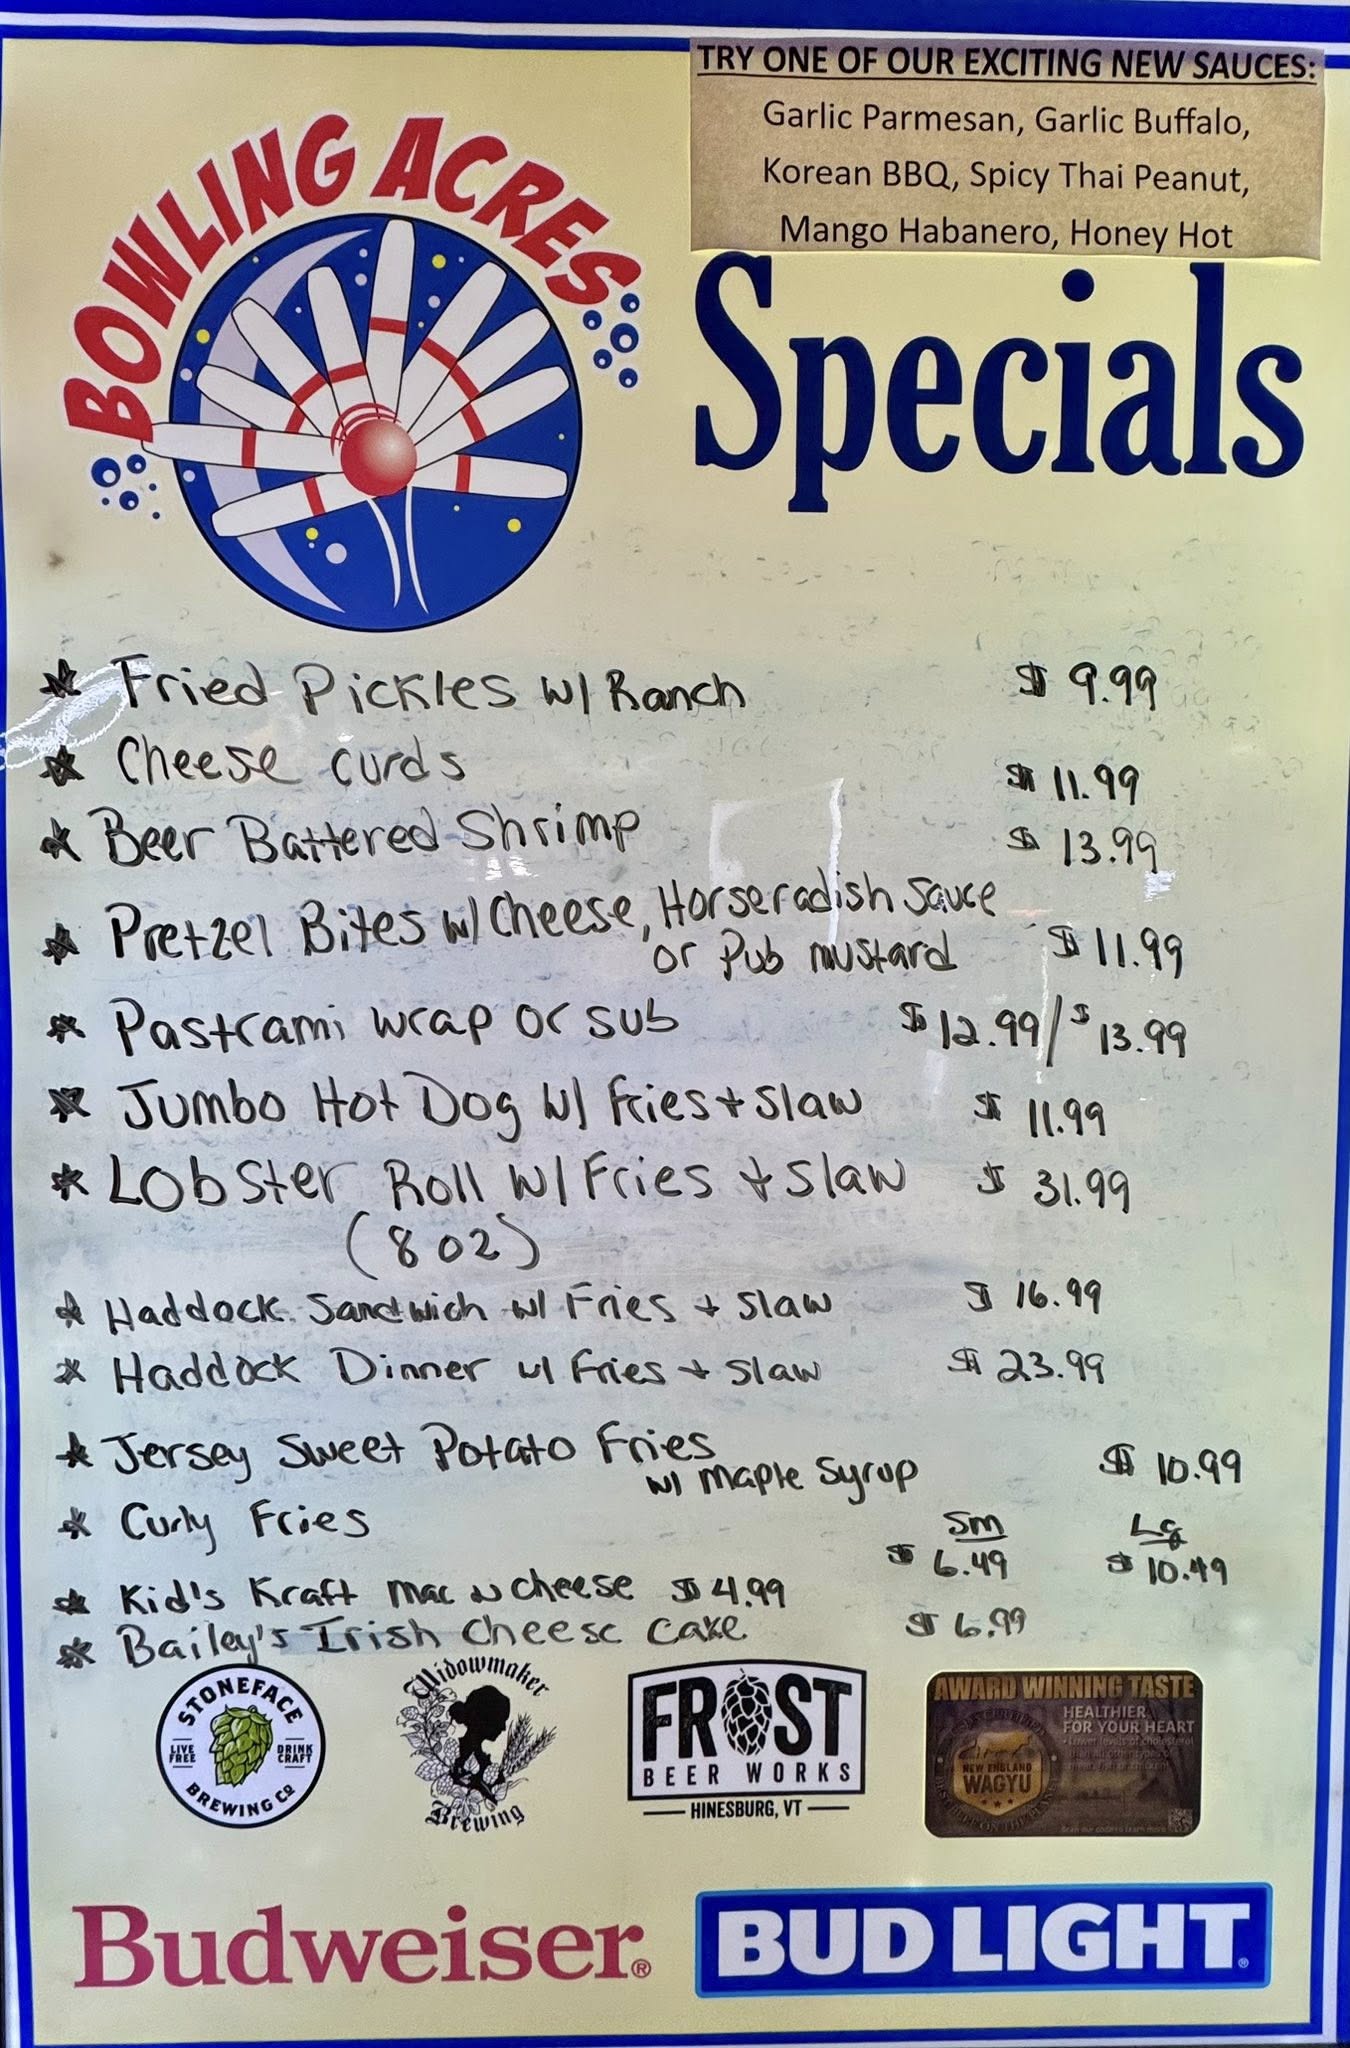 TRY ONE OF OUR EXCITING NEW SAUCES:
Garlic Parmesan, Garlic Buffalo,
Korean BBQ, Spicy Thai Peanut,
Mango Habanero, Honey Hot
BOWLING ACRES
Specials
Fried Pickles w/ Ranch $9.99
Cheese curds $11.99
Beer Battered Shrimp $13.99
Pretzel Bites w/ Cheese, Horseradish Sauce
or Pub mustard $11.99
Pastrami wrap or sub $12.99/$13.99
Jumbo Hot Dog w/ Fries + Slaw $11.99
Lobster Roll w/ Fries + Slaw $31.99
(8 oz)
Haddock Sandwich w/ Fries + Slaw $16.99
Haddock Dinner w/ Fries + Slaw $23.99
Jersey Sweet Potato Fries
w/ Maple Syrup $10.99
Curly Fries Sm Lg
$6.49 $10.49
Kid's Kraft Mac n cheese $4.99
Bailey's Irish Cheese Cake $6.99
STONEFACE
LIVE FREE DRINK CRAFT
BREWING CO
Widowmaker
Brewing
FROST
BEER WORKS
HINESBURG, VT
AWARD WINNING TASTE
HEALTHIER
FOR YOUR HEART
Lower levels of cholesterol
NEW ENGLAND
WAGYU
Budweiser®
BUD LIGHT®